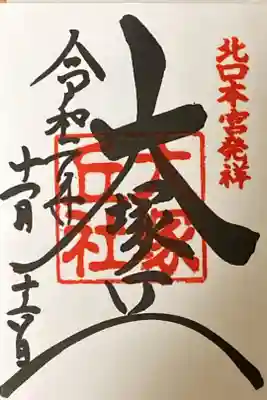 北口本宮発祥
大塚丘
大塚
丘社
令和年
十一月 十六日